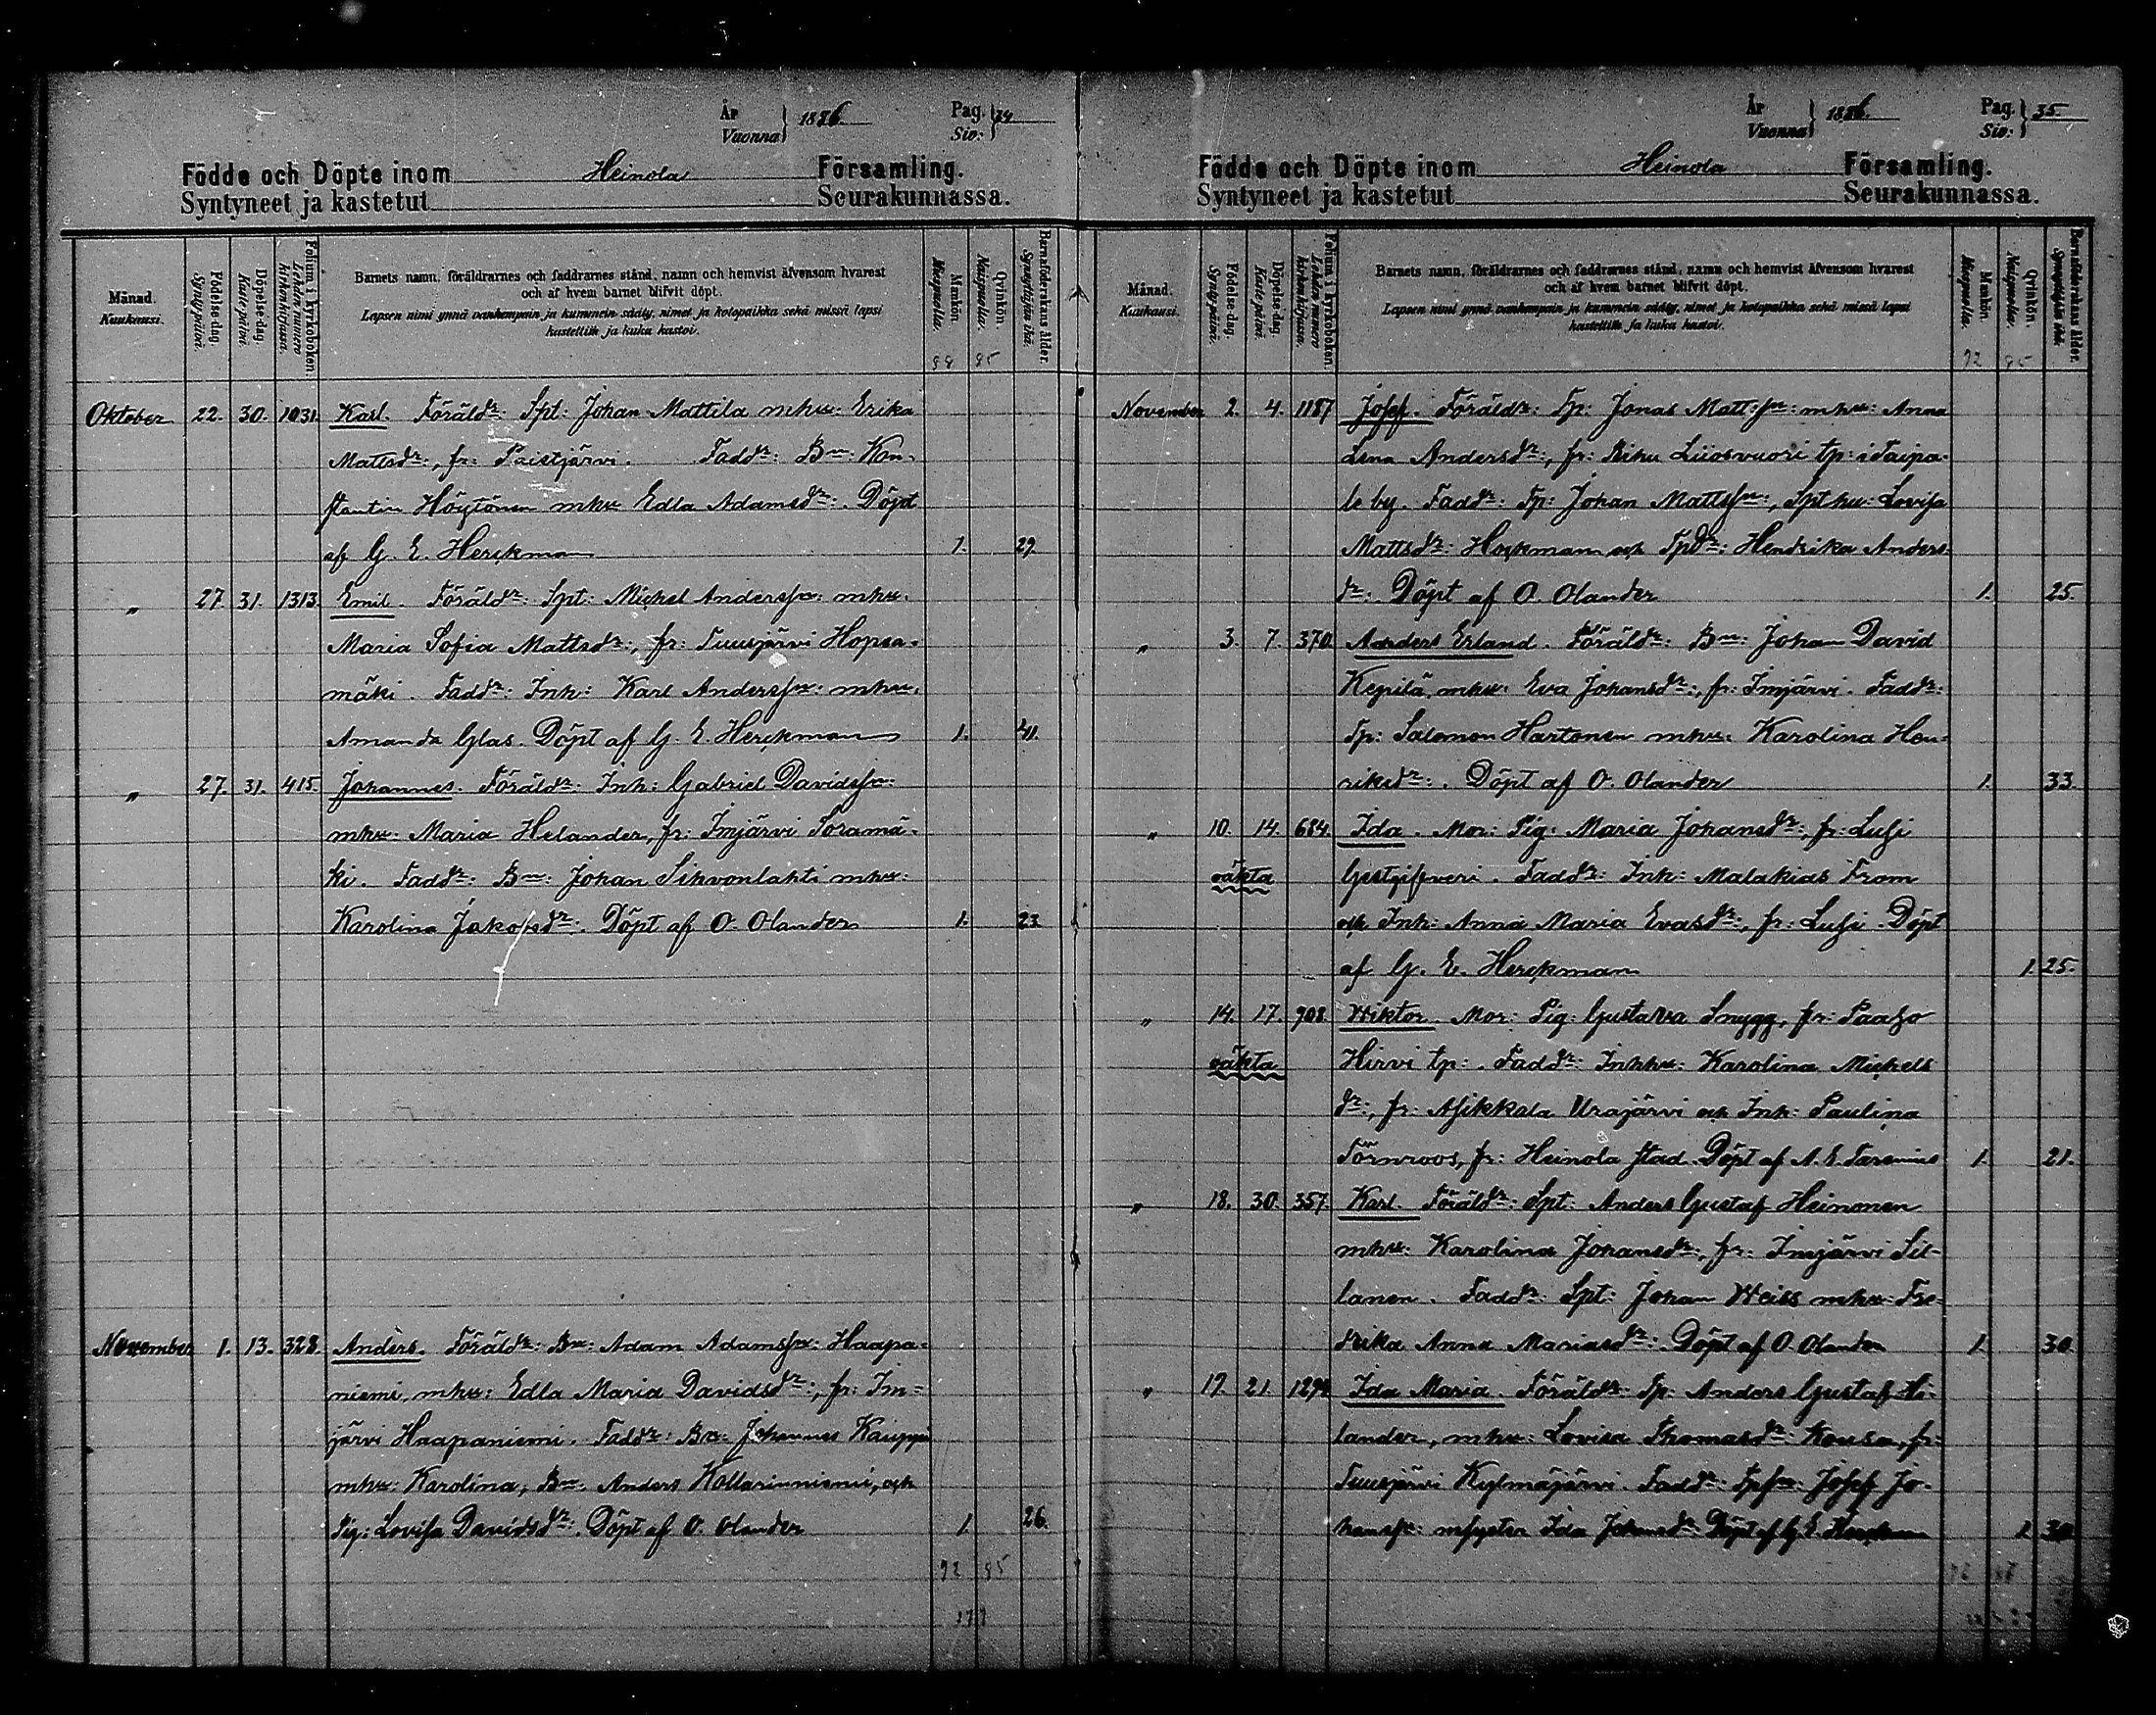 År
Vuonna } 1886.
Pag.
Siv: } 34
Födde och Döpte inom Heinola Församling.
Syntyneet ja kastetut Seurakunnassa.
Månad.
Kuukausi.
Födelse-dag.
Syntypäivä.
Döpelse-dag.
Kastepäivä.
Folium i kyrkoboken.
Lehden numero kirkonkirjassa.
Barnets namn, föräldrarnes och faddrarnes stånd, namn och hemvist äfvensom hvarest
och af hvem barnet blifvit döpt.
Lapsen nimi ynnä vanhempain ja kummein sääty, nimet ja kotopaikka sekä missä lapsi
kastettiin ja kuka kastoi.
Mankön.
Miespuolia.
Qvinkön.
Naispuolia.
Barnaföderskans ålder.
Synnyttäjän ikä.
88 85
Oktober 22. 30. 1031. Karl. Föräldr: Spt: Johan Mattila mhu: Erika
Mattsdr:, fr: Paistjärvi. Faddr: Bm: Kon-
stantin Höytönen mhu Edla Adamsdr: Döpt
af G. E. Herckman 1. 29.
" 27. 31. 1313. Emil. Föräldr: Spt: Michel Anderssn: mhu:
Maria Sofia Mattsdr:, fr: Tuusjärvi Hopea-
mäki. Faddr: Inh: Karl Anderssn: mhu:
Amanda Glas. Döpt af G. E. Herckman 1. 41.
" 27. 31. 415. Johannes. Föräldr: Inh: Gabriel Davidssn:
mhu: Maria Helander, fr: Imjärvi Soramä-
ki. Faddr: Bm: Johan Sihvonlahti mhu:
Karolina Jakobsdr: Döpt af O. Olander 1. 23.
November 1. 13. 328. Anders. Föräldr: Bm: Adam Adamssn: Haapa-
niemi, mhu: Edla Maria Davidsdr:, fr: Im-
järvi Haapaniemi. Faddr: Bm: Johannes Kauppi
mhu: Karolina, Bm: Anders Kollarinniemi, och
Pig: Lovisa Davidsdr: Döpt af O. Olander 1. 26.
92 85
177
År
Vuonna } 1886.
Pag.
Siv: } 35.
Födde och Döpte inom Heinola Församling.
Syntyneet ja kastetut Seurakunnassa.
Månad.
Kuukausi.
Födelse-dag.
Syntypäivä.
Döpelse-dag.
Kastepäivä.
Folium i kyrkoboken.
Lehden numero kirkonkirjassa.
Barnets namn, föräldrarnes och faddrarnes stånd, namn och hemvist äfvensom hvarest
och af hvem barnet blifvit döpt.
Lapsen nimi ynnä vanhempain ja kummein sääty, nimet ja kotopaikka sekä missä lapsi
kastettiin ja kuka kastoi.
Mankön.
Miespuolia.
Qvinkön.
Naispuolia.
Barnaföderskans ålder.
Synnyttäjän ikä.
92 85
November 2. 4. 1187 Josef. Föräldr: Tp: Jonas Matt:sn: mhu: Anna
Lena Andersdr:, fr: Liiosvuori tp: i Taipa-
le by. Faddr: Tp: Johan Mattssn:, Spt:hu: Lovisa
Mattsdr: Hockman och Tpdr: Hendrika Anders-
dr:. Döpt af O. Olander 1. 25.
" 3. 7. 370. Anders Erland. Föräldr: Bm: Johan David
Kepilä, mhu: Eva Johansdr:, fr: Imjärvi. Faddr:
Tp: Salomon Hartonen mhu: Karolina Hen-
riksdr:. Döpt af O. Olander 1. 33.
" 10. 14. 684. Ida. Mor: Pig: Maria Johansdr:, fr: Lusi
oäkta Gestgifveri. Faddr: Inh: Malakias From
och Inh: Anna Maria Evasdr:, fr: Lusi. Döpt
af G. E. Herckman 1. 25.
" 14. 17. 908. Wiktor. Mor: Pig: Gustava Snygg, fr: Paaso
oäkta Hirvi tp:. Faddr: Inhhu: Karolina Michels-
dr:, fr: Asikkala Urajärvi och Inh: Paulina
Törnroos, fr: Heinola stad. Döpt af A. E. 1. 21.
" 18. 30. 357. Karl. Föräldr: Spt: Anders Gustaf Heinonen
mhu: Karolina Johansdr:, fr: Imjärvi Sil-
lanen. Faddr: Spt: Johan Weiss mhu: Fre-
drika Anna Mariasdr: Döpt af O. Olander 1. 30.
" 19. 21. 1294. Ida Maria. Föräldr: Tp: Anders Gustaf
lander, mhu: Lovisa Thomasdr: Kousa, fr:
Tuusjärvi Kylmäjärvi. Faddr: Tpsn: Josef Jo-
hanssn: msyster Ida Johansdr: Döpt af G. E. Herckman 1. 30.